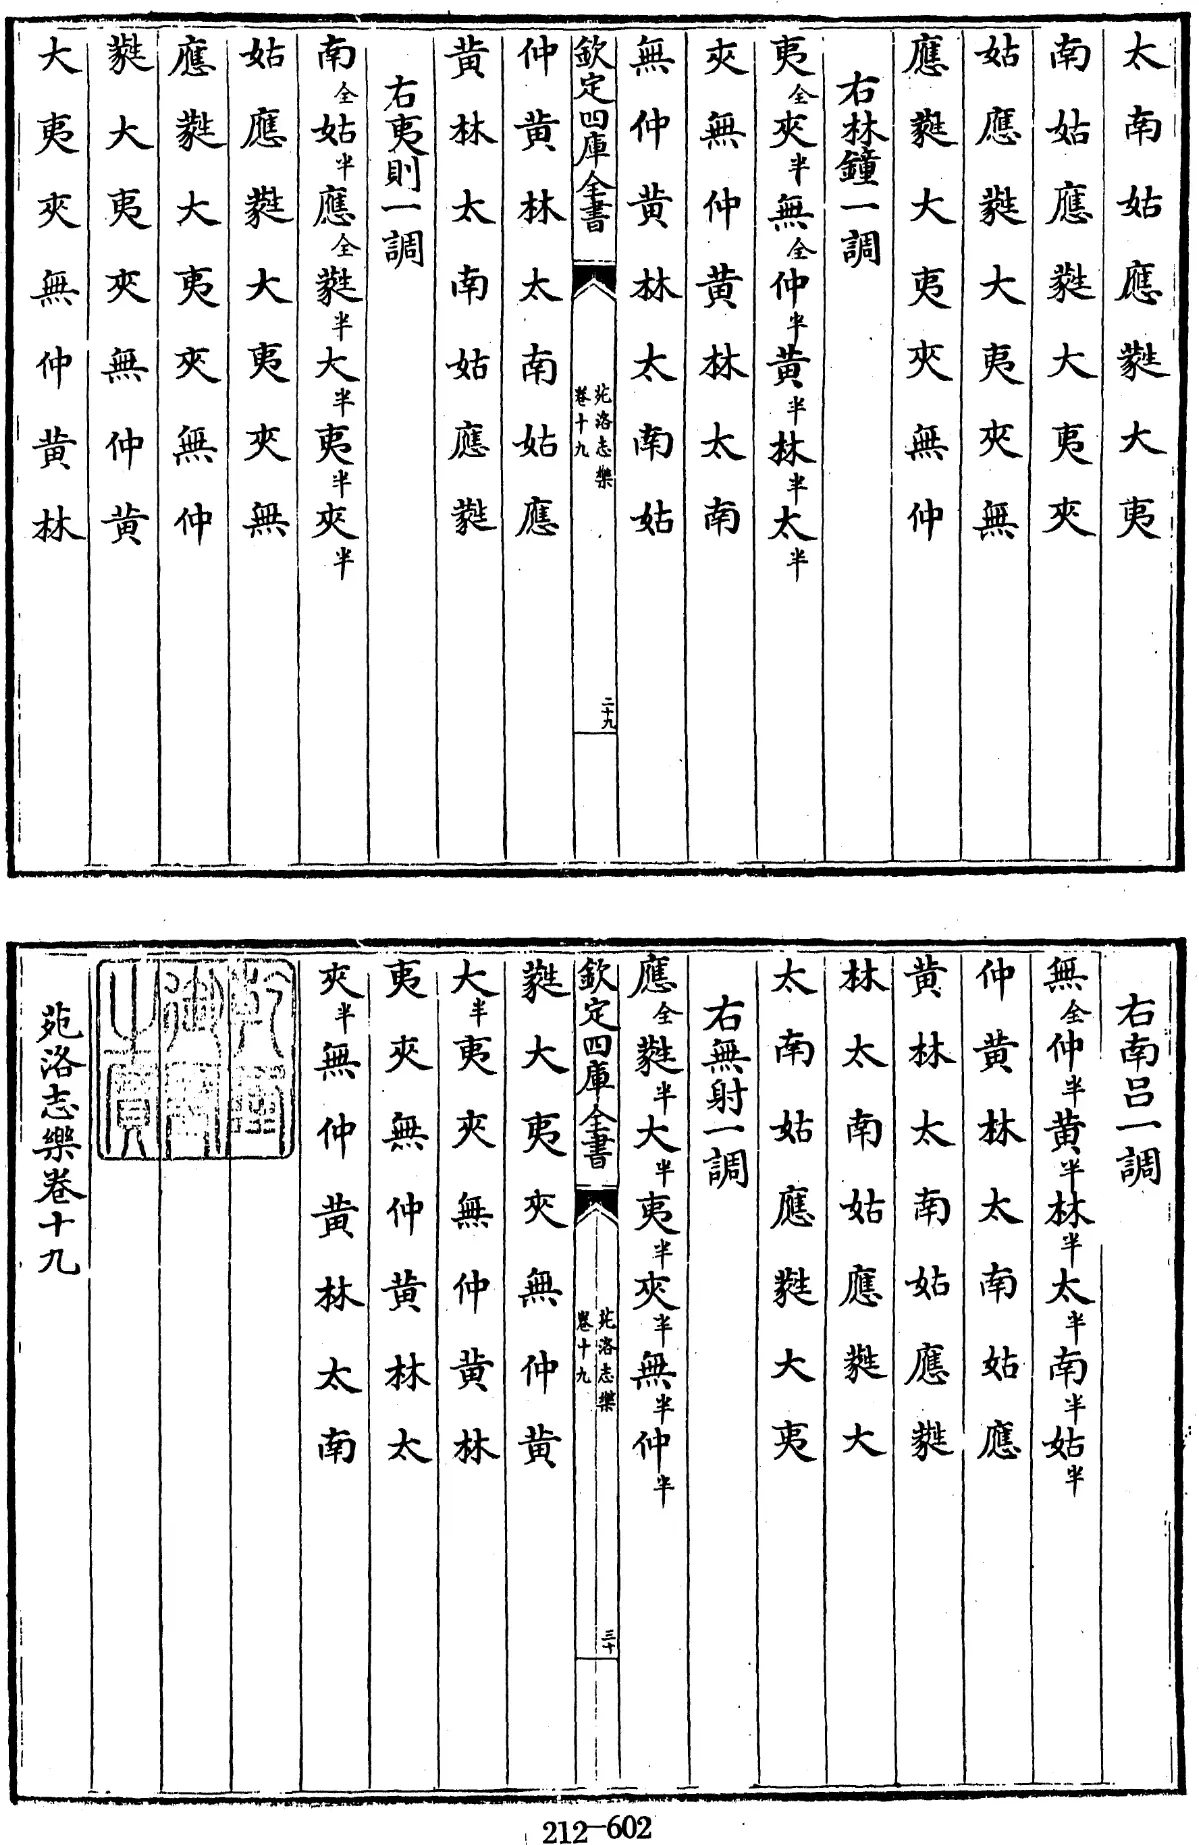 太南姑應蕤大夷
南姑應蕤大夷夾
姑應蕤大夷夾無
應蕤大夷夾無仲
右林鐘一調
夷全夾半無全仲半黃半林半太半
夾無仲黃林太南
無仲黃林太南姑
欽定四庫全書
苑洛志樂
卷十九
二十九
仲黃林太南姑應
黃林太南姑應蕤
右夷則一調
南全姑半應全蕤半大半夷半夾半
姑應蕤大夷夾無
應蕤大夷夾無仲
蕤大夷夾無仲黃
大夷夾無仲黃林
右南呂一調
無全仲半黃半林半太半南半姑半
仲黃林太南姑應
黃林太南姑應蕤
林太南姑應蕤大
太南姑應蕤大夷
右無射一調
應全蕤半大半夷半夾半無半仲半
欽定四庫全書
苑洛志樂
卷十九
三十
蕤大夷夾無仲黃
大半夷夾無仲黃林
夷夾無仲黃林太
夾半無仲黃林太南
乾隆
御覽
之寶
苑洛志樂卷十九
212-602